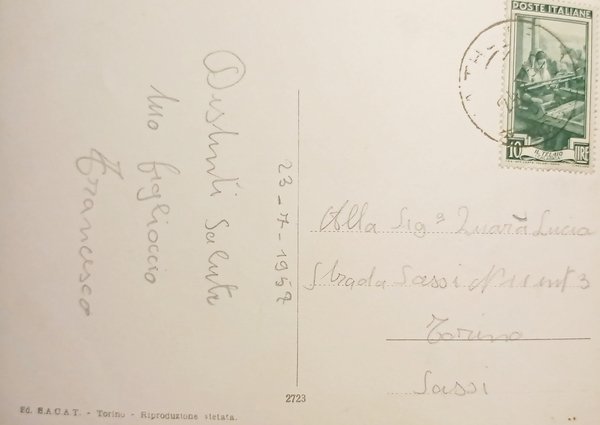 Distinti saluti
tuo figlioccio
Francesco
23-7-1957
POSTE ITALIANE
IL TELAIO
10 LIRE
Alla Sigª Zuarà Lucia
Strada Sassi Nº 11 int 3
Torino
Sassi
2723
Ed. S.A.C.A.T. - Torino - Riproduzione vietata.